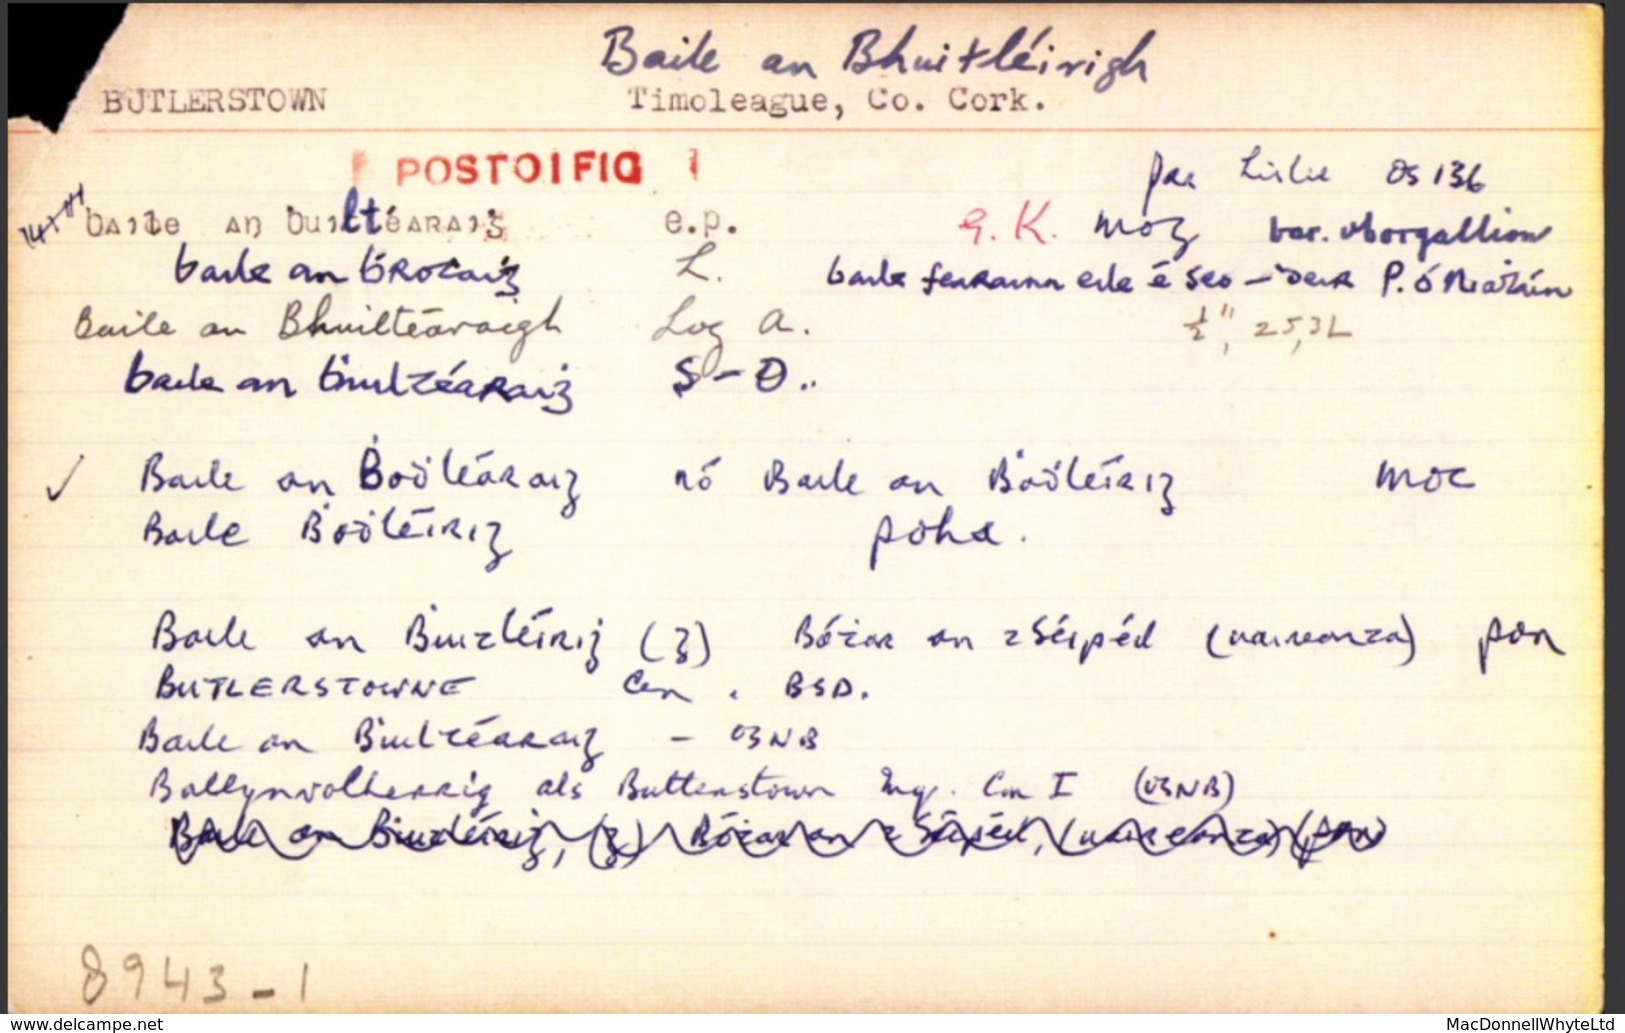 Baile an Bhuitléirigh
BUTLERSTOWN Timoleague, Co. Cork.
POSTOIFIG
par Lislee OS 136
baile an ḃuiltéaraiġ e.p. G. K. moġ bar.
baile an ḃrotaiġ L. baile fearainn eile é seo — deir P. Ó Niatáin
Baile an Bhuiltéaraigh Log A. ½", 25,3L
baile an ḃuiltéaraiġ S-D.
✓ Baile an Ḃoitléaraiġ nó Baile an Ḃoitléiriġ MOC
Baile Ḃoitléiriġ poha.
Baile an Ḃuitléiriġ (g) Bóṫar an tSéipéil (uaireanta) pon
BUTLERSTOWNE Cen. BSD.
Baile an Ḃuiltéaraiġ — OSNB
Ballynvolherrig als Butlerstown Inq. Car I (OSNB)
Baile an Ḃuitléiriġ, (g) Bóṫar an tSéipéil, (uaireanta) (pon)
8943-1
www.delcampe.net MacDonnellWhyteLtd